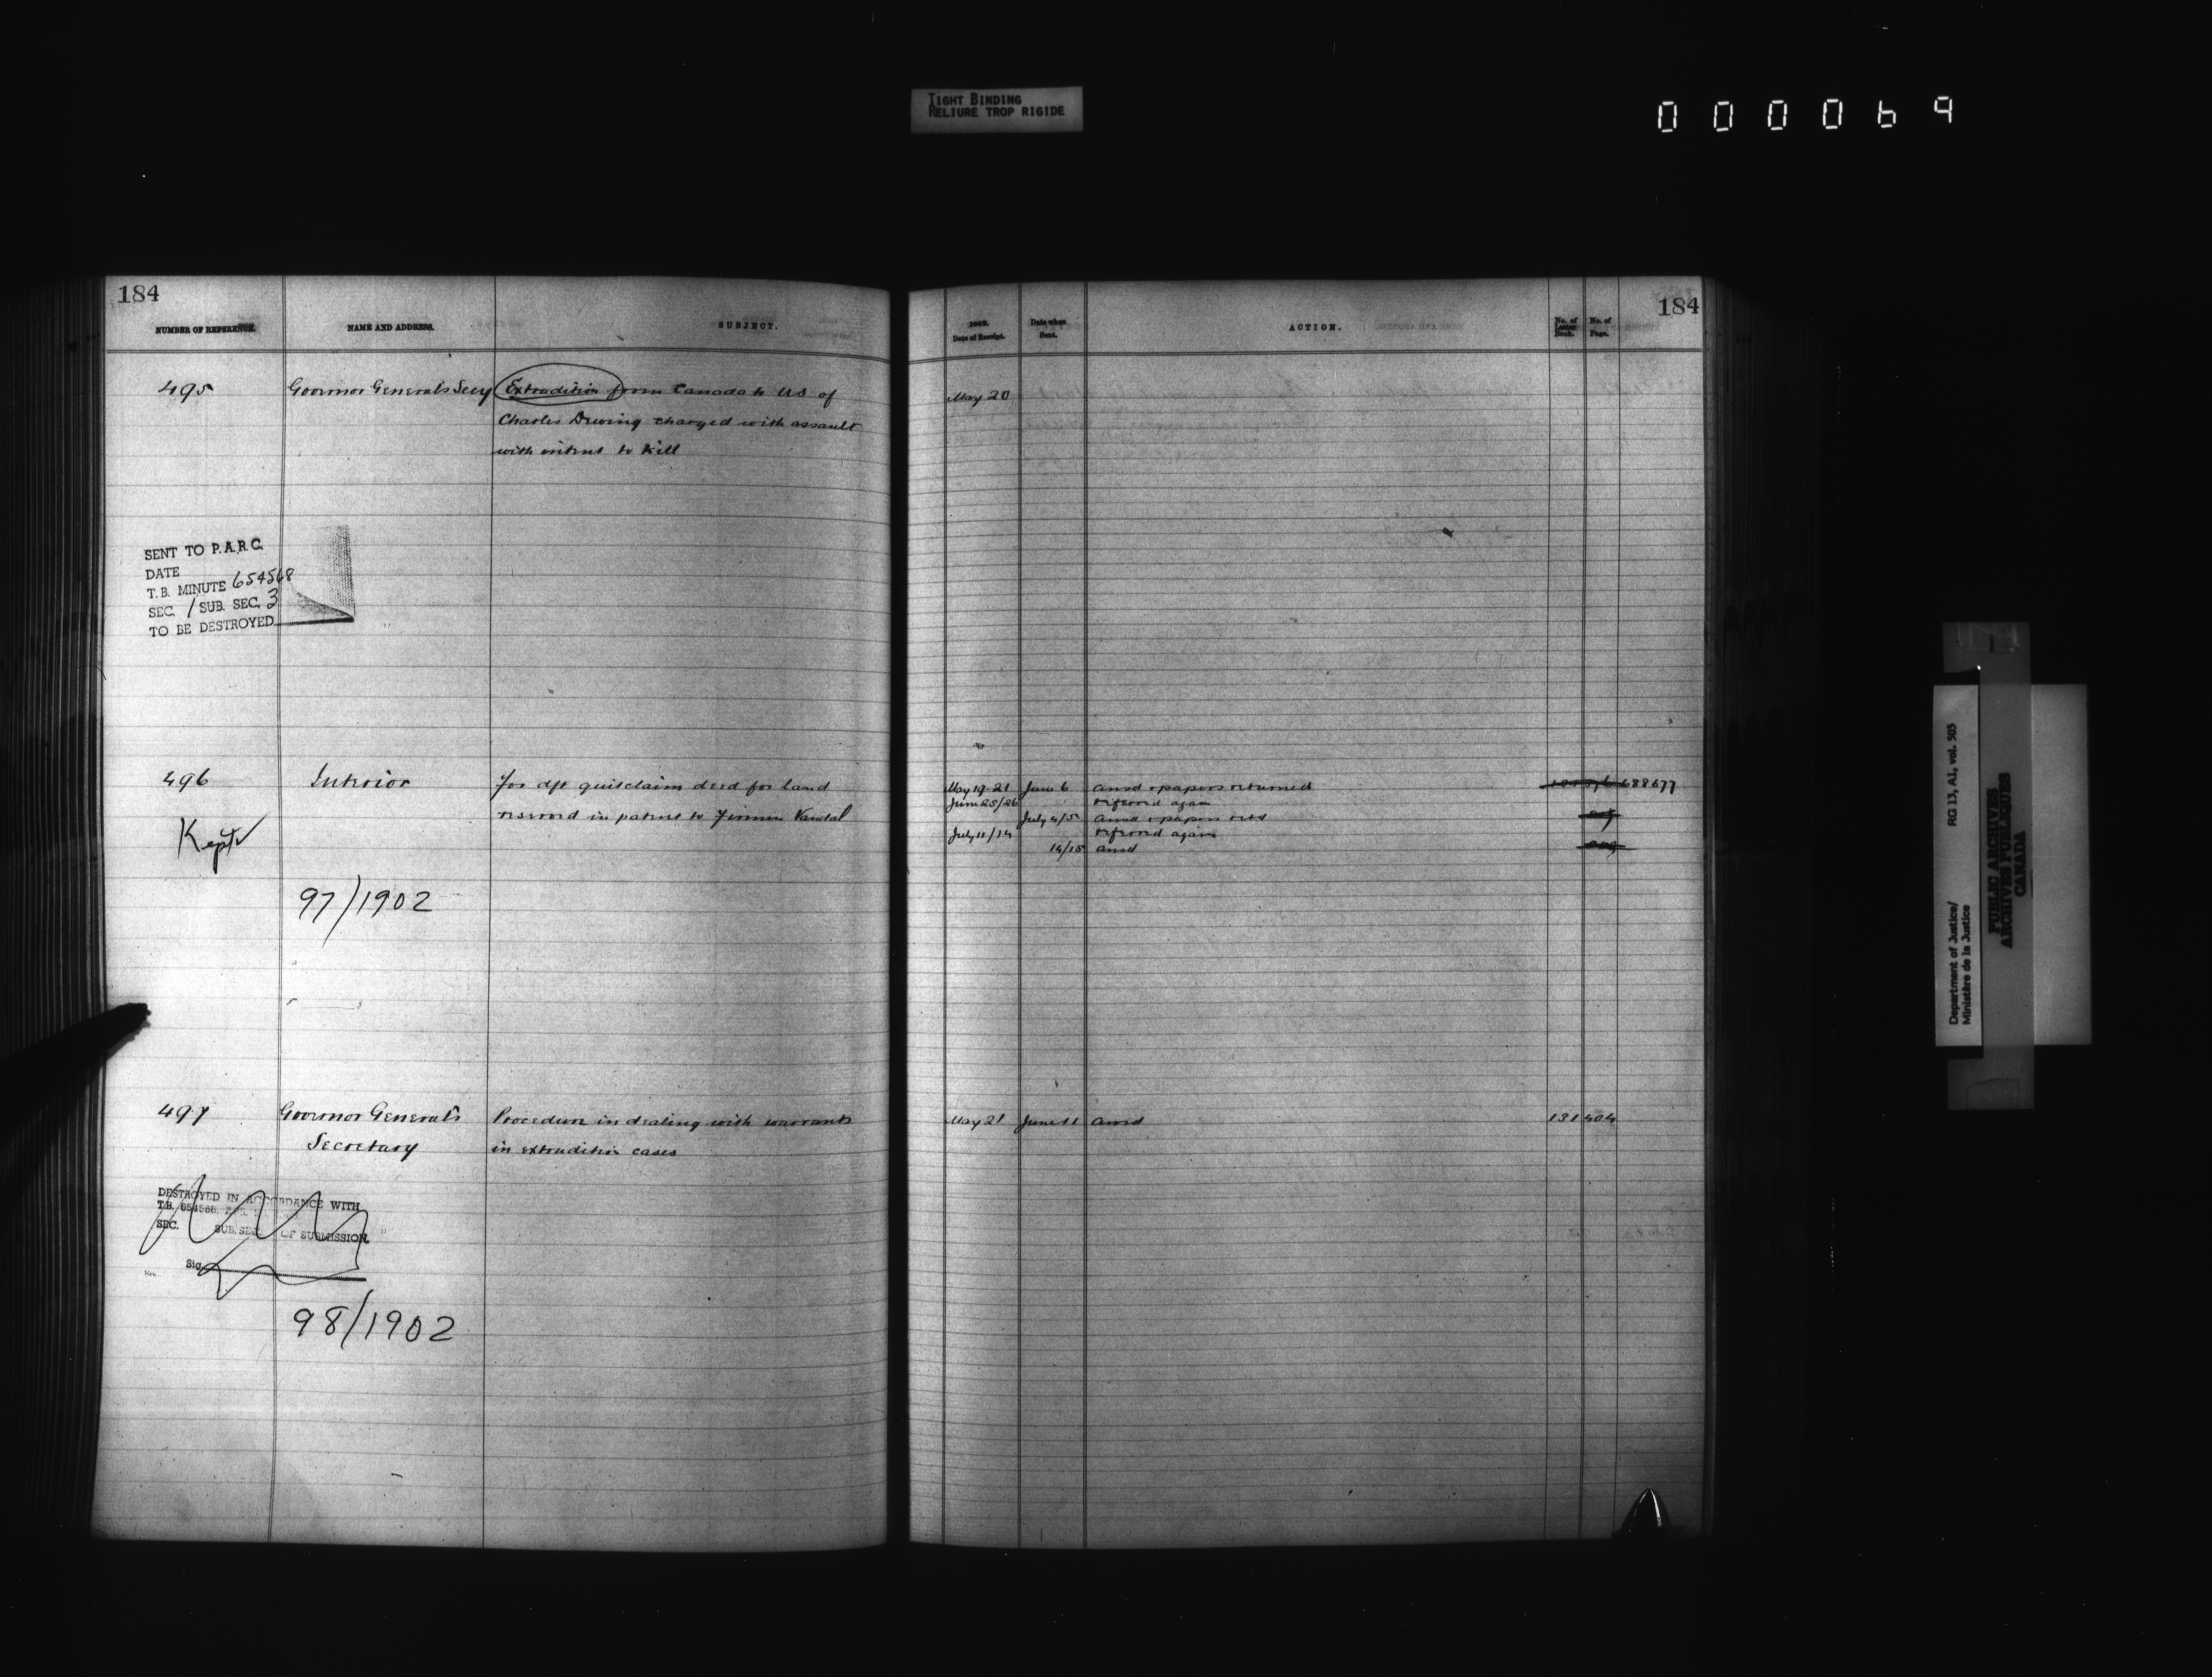 TIGHT BINDING
RELIURE TROP RIGIDE
000069
184
NUMBER OF REFERENCE. NAME AND ADDRESS. SUBJECT.
495 Governor General's Secy Extradition from Canada to US of
Charles Dewing charged with assault
with intent to kill
SENT TO P.A.R.C.
DATE
T.B. MINUTE 654568
SEC. 1 SUB. SEC. 3
TO BE DESTROYED
496 Interior for dft quitclaim deed for land
reserved in patent to Firmin Vandal
Kept
97/1902
497 Governor General's Procedure in dealing with warrants
Secretary in extradition cases
DESTROYED IN ACCORDANCE WITH
T.B. 654568
SEC. SUB. SEC. OF SUBMISSION.
Sig.
98/1902
184
1902. Date of Receipt. Date when Sent. ACTION. No. of Letter Book. No. of Page.
May 20
May 19-21 June 6 ansd & papers returned 688677
June 25/26 referred again
July 4/5 ansd & papers retd
July 11/14 referred again
14/15 ansd
May 21 June 11 ansd 131 404
Department of Justice/
Ministère de la Justice
RG 13, A1, vol. 505
PUBLIC ARCHIVES
ARCHIVES PUBLIQUES
CANADA